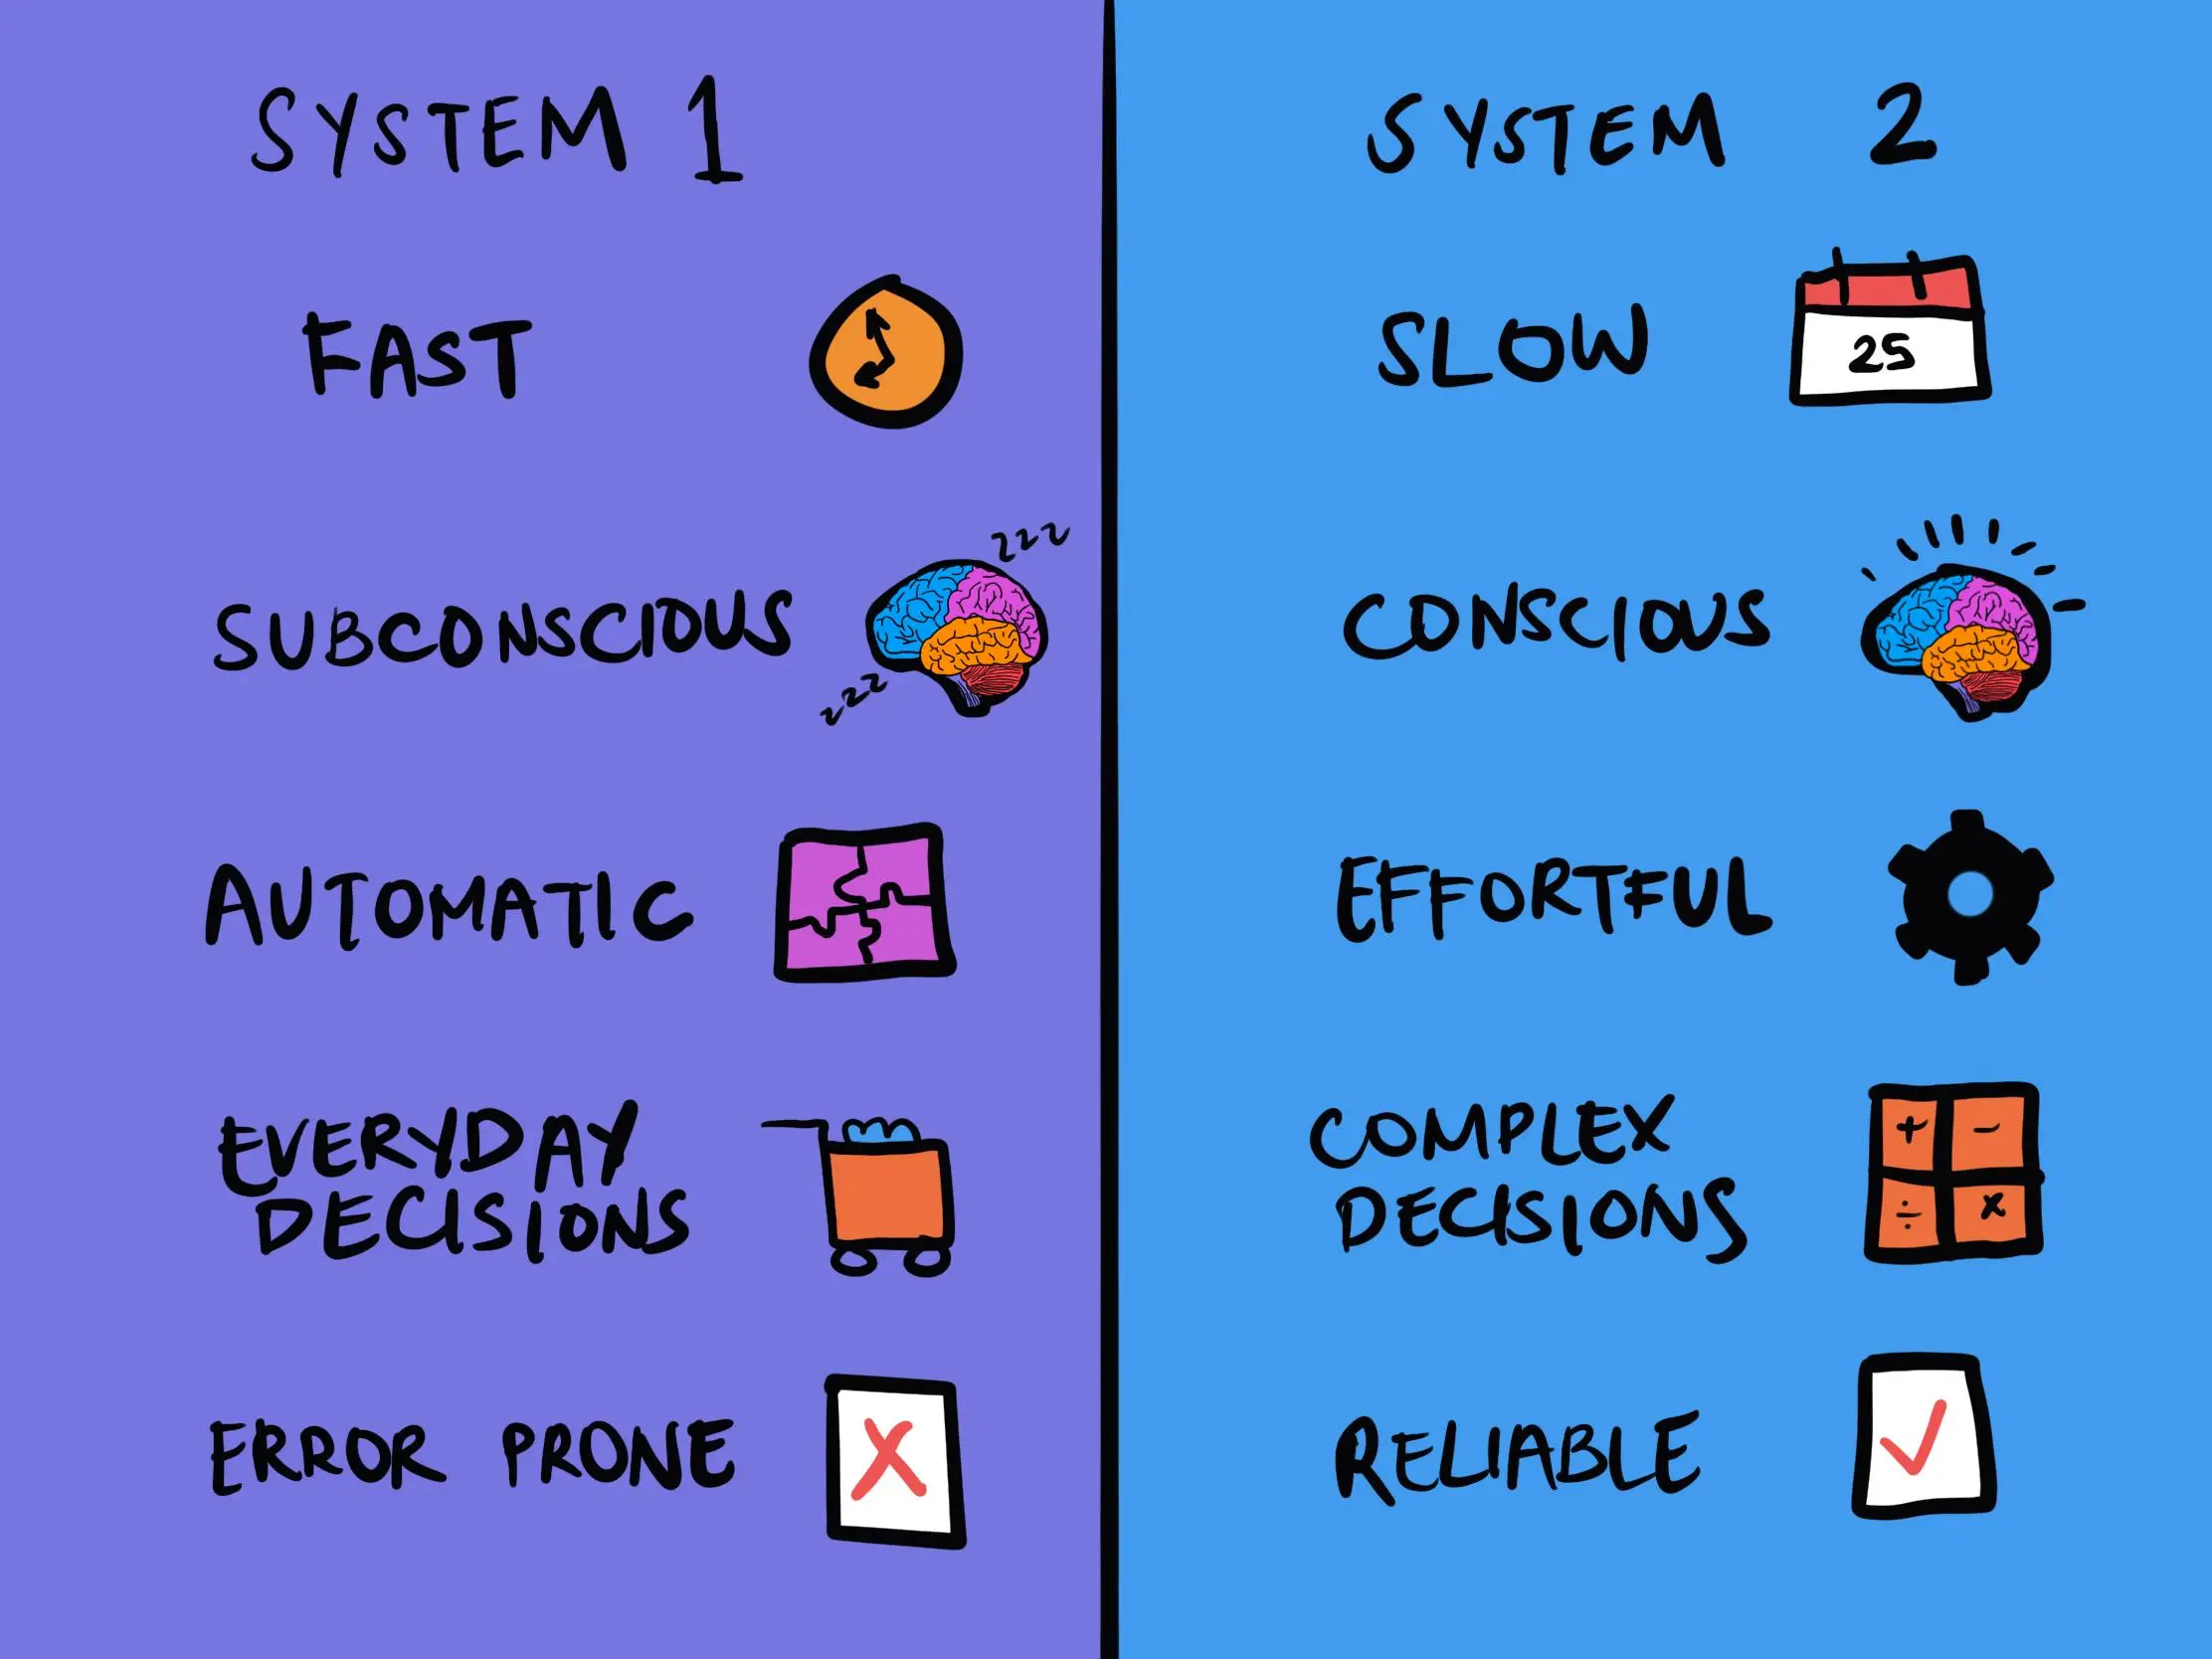 SYSTEM 1
FAST
SUBCONSCIOUS
zzz
zzz
AUTOMATIC
EVERYDAY
DECISIONS
ERROR PRONE
X
SYSTEM 2
SLOW
25
CONSCIOUS
EFFORTFUL
COMPLEX
DECISIONS
+ -
÷ x
RELIABLE